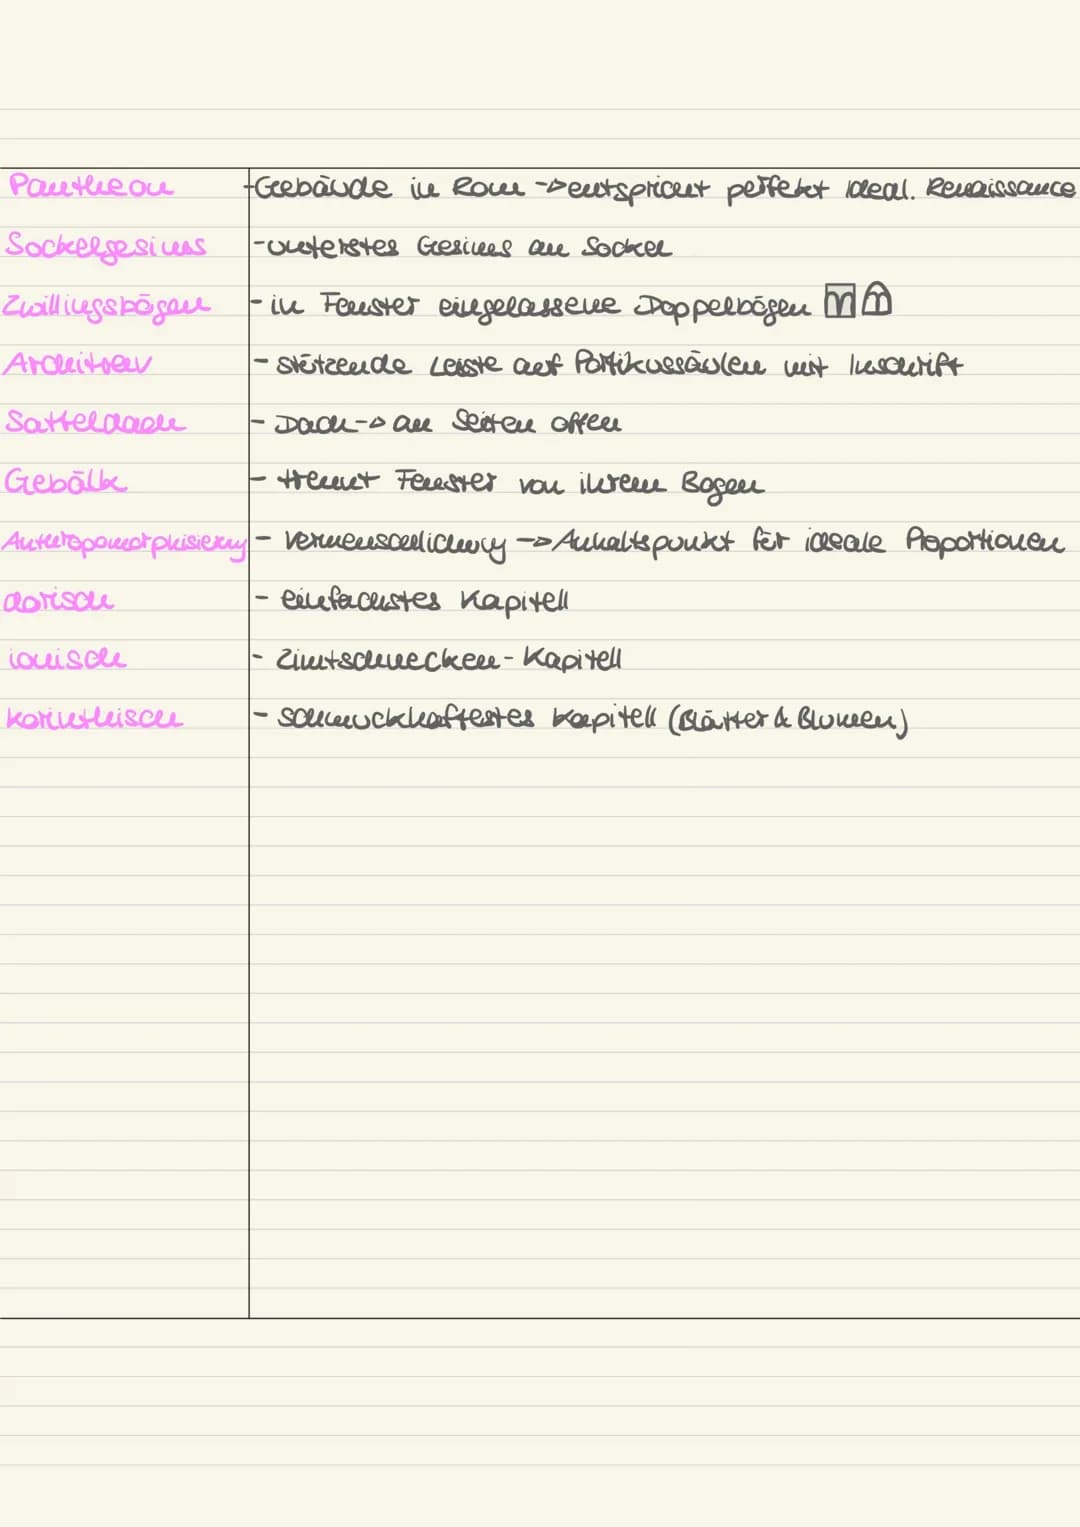 Pantheon - Gebäude in Rom -> entspricht perfekt ideal. Renaissance
Sockelgesims - unterstes Gesims am Sockel
Zwillingsbögen - in Fenster eingelassene Doppelbögen
Architrav - stützende Leiste auf Portikussäulen mit Inschrift
Satteldach - Dach -> an Seiten offen
Gebälk - trennt Fenster von ihrem Bogen
Anthropomorphisierung - Vermenschlichung -> Anhaltspunkt für ideale Proportionen
dorisch - einfachstes Kapitell
ionisch - Zimtschnecken-Kapitell
korinthisch - schmuckhaftestes Kapitell (Blätter & Blumen)